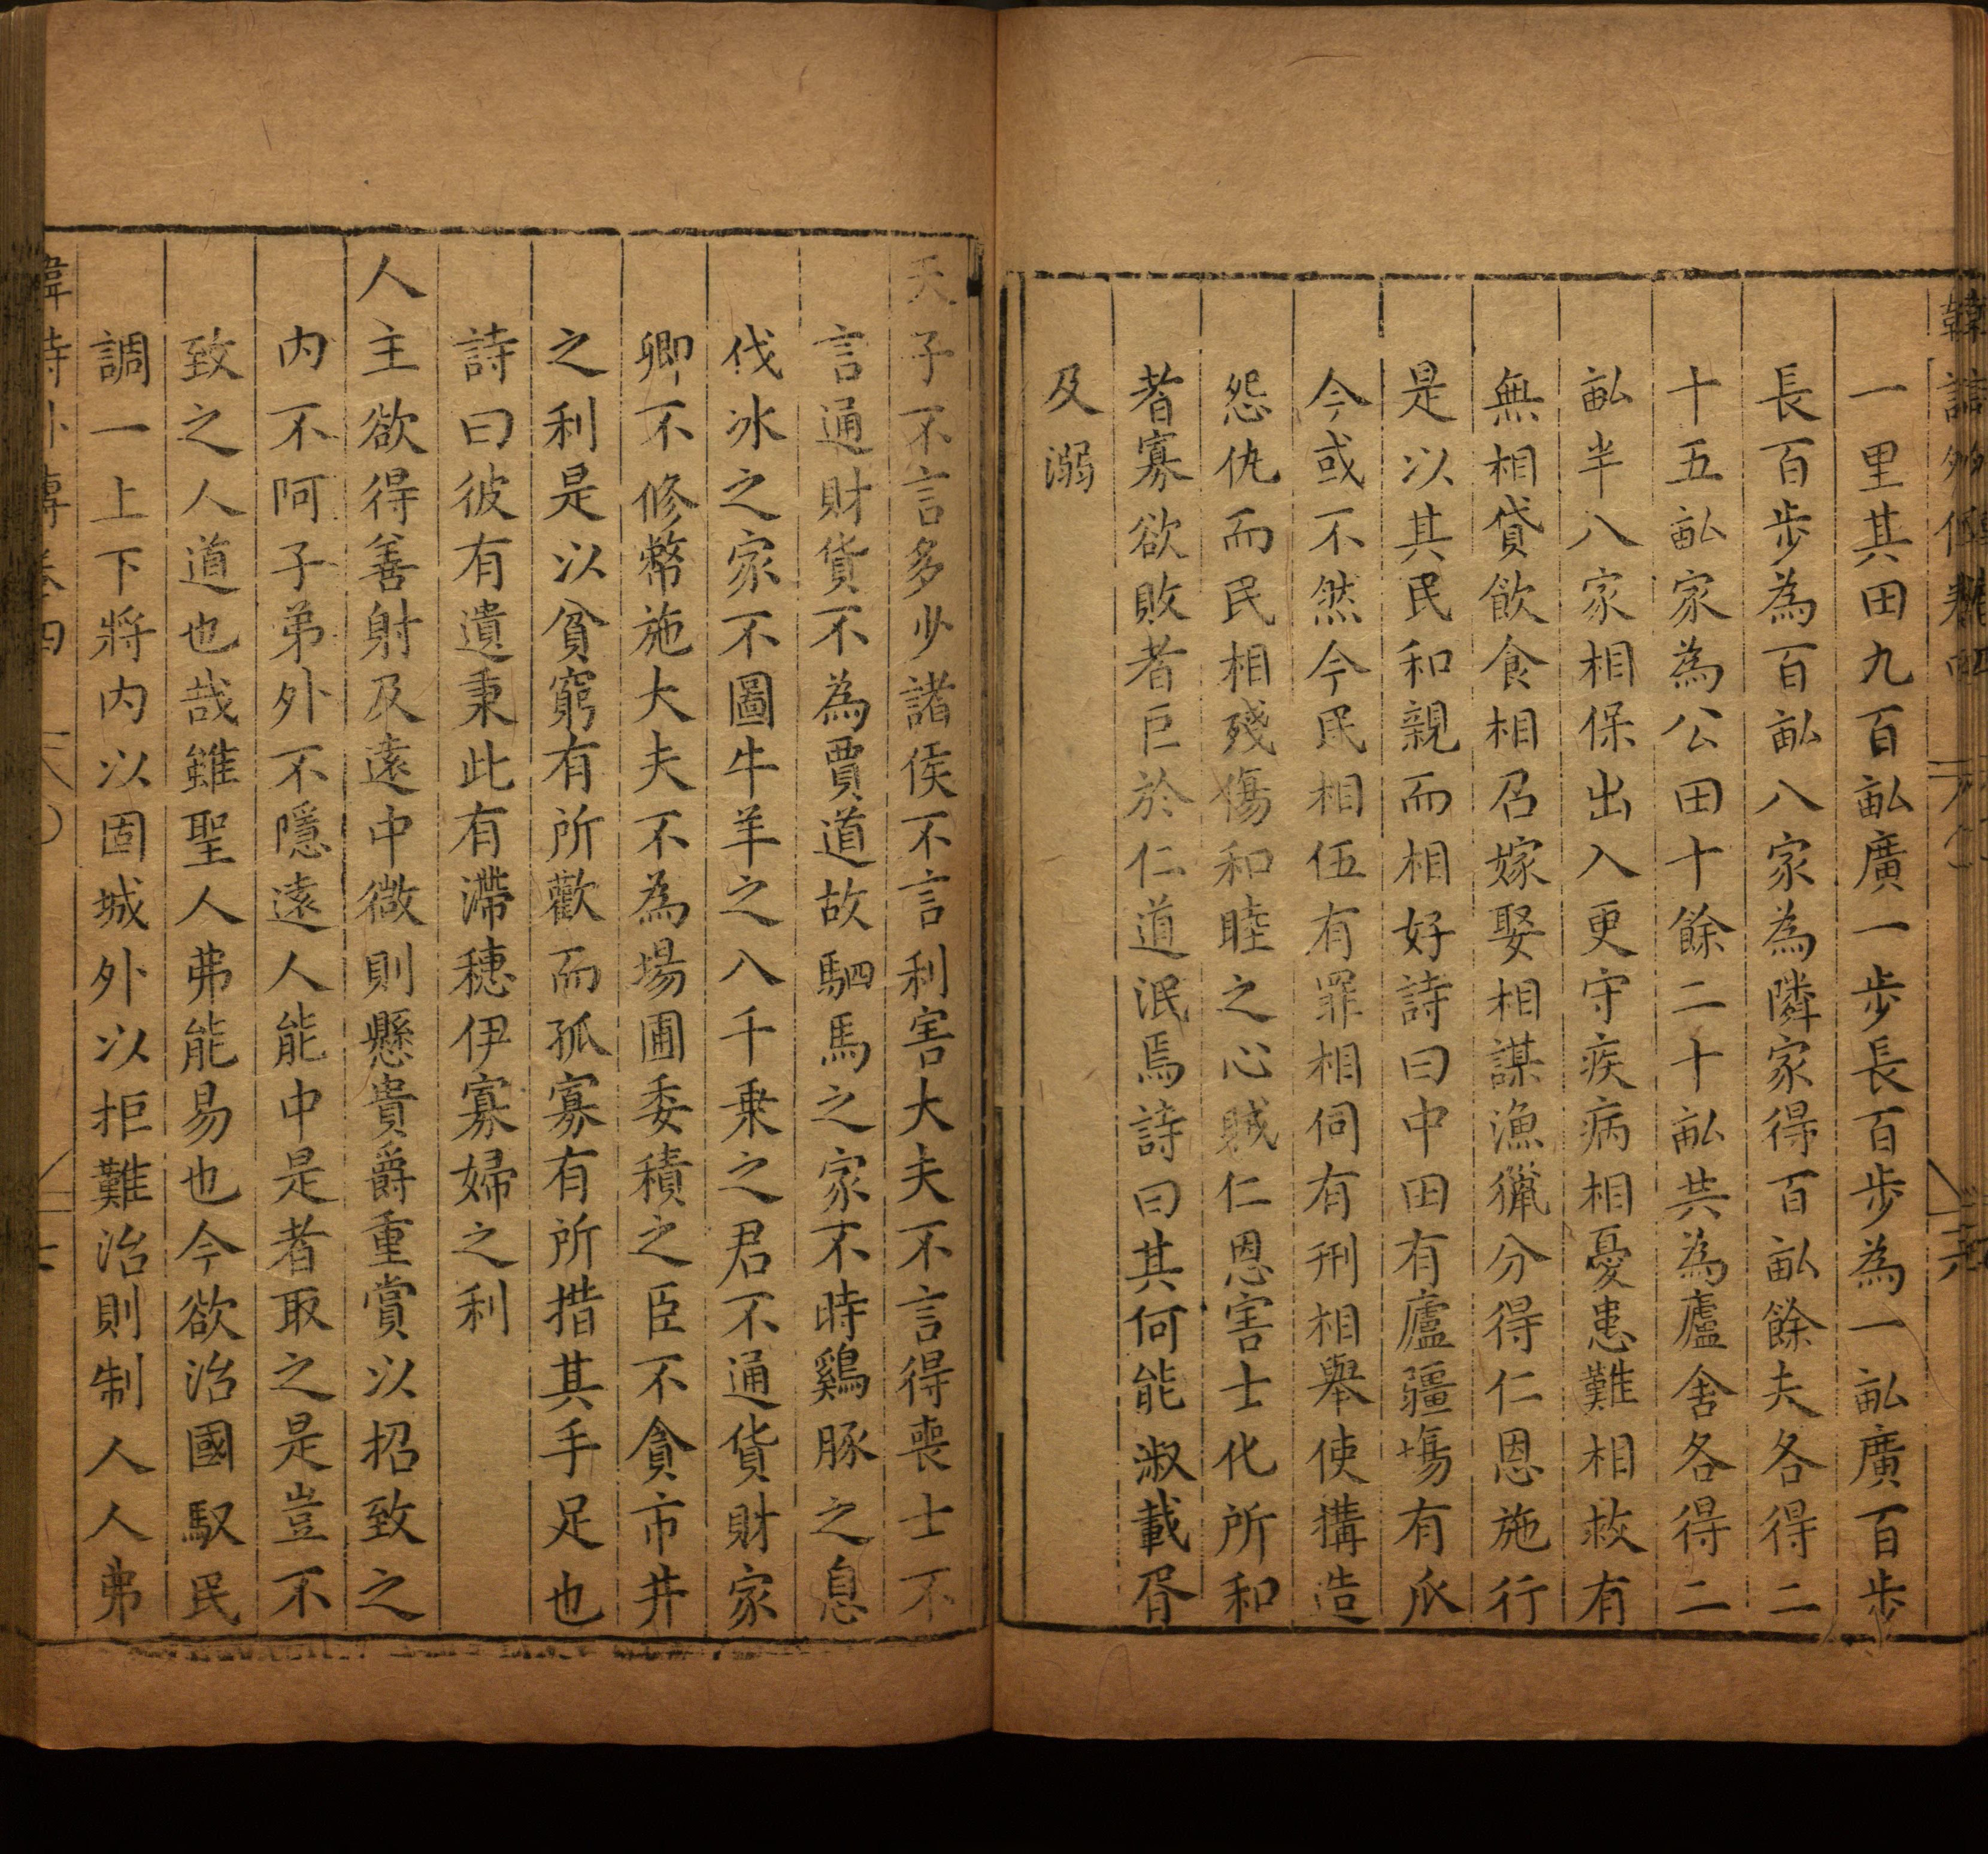 一里其田九百畒廣一步長百步為一畒廣百步
長百步為百畒八家為隣家得百畒餘夫各得二
十五畒家為公田十餘二十畒共為廬舍各得二
畒半八家相保出入更守疾病相憂患難相救有
無相貸飲食相召嫁娶相謀漁獵分得仁恩施行
是以其民和親而相好詩曰中田有廬疆場有瓜
今或不然令民相伍有罪相伺有刑相舉使搆造
怨仇而民相殘傷和睦之心賊仁恩害士化所和
者寡欲敗者巨於仁道泯焉詩曰其何能淑載胥
及溺
天子不言多少諸侯不言利害大夫不言得喪士不
言通財貨不為賈道故駟馬之家不時鷄豚之息
伐冰之家不圖牛羊之入千乗之君不通貨財家
卿不修幣施大夫不為場圃委積之臣不貪市井
之利是以貧窮有所歡而孤寡有所措其手足也
詩曰彼有遺秉此有滯穗伊寡婦之利
人主欲得善射及遠中微則懸貴爵重賞以招致之
内不阿子弟外不隱遠人能中是者取之是豈不
致之人道也哉雖聖人弗能易也今欲治國馭民
調一上下將内以固城外以拒難治則制人人弗